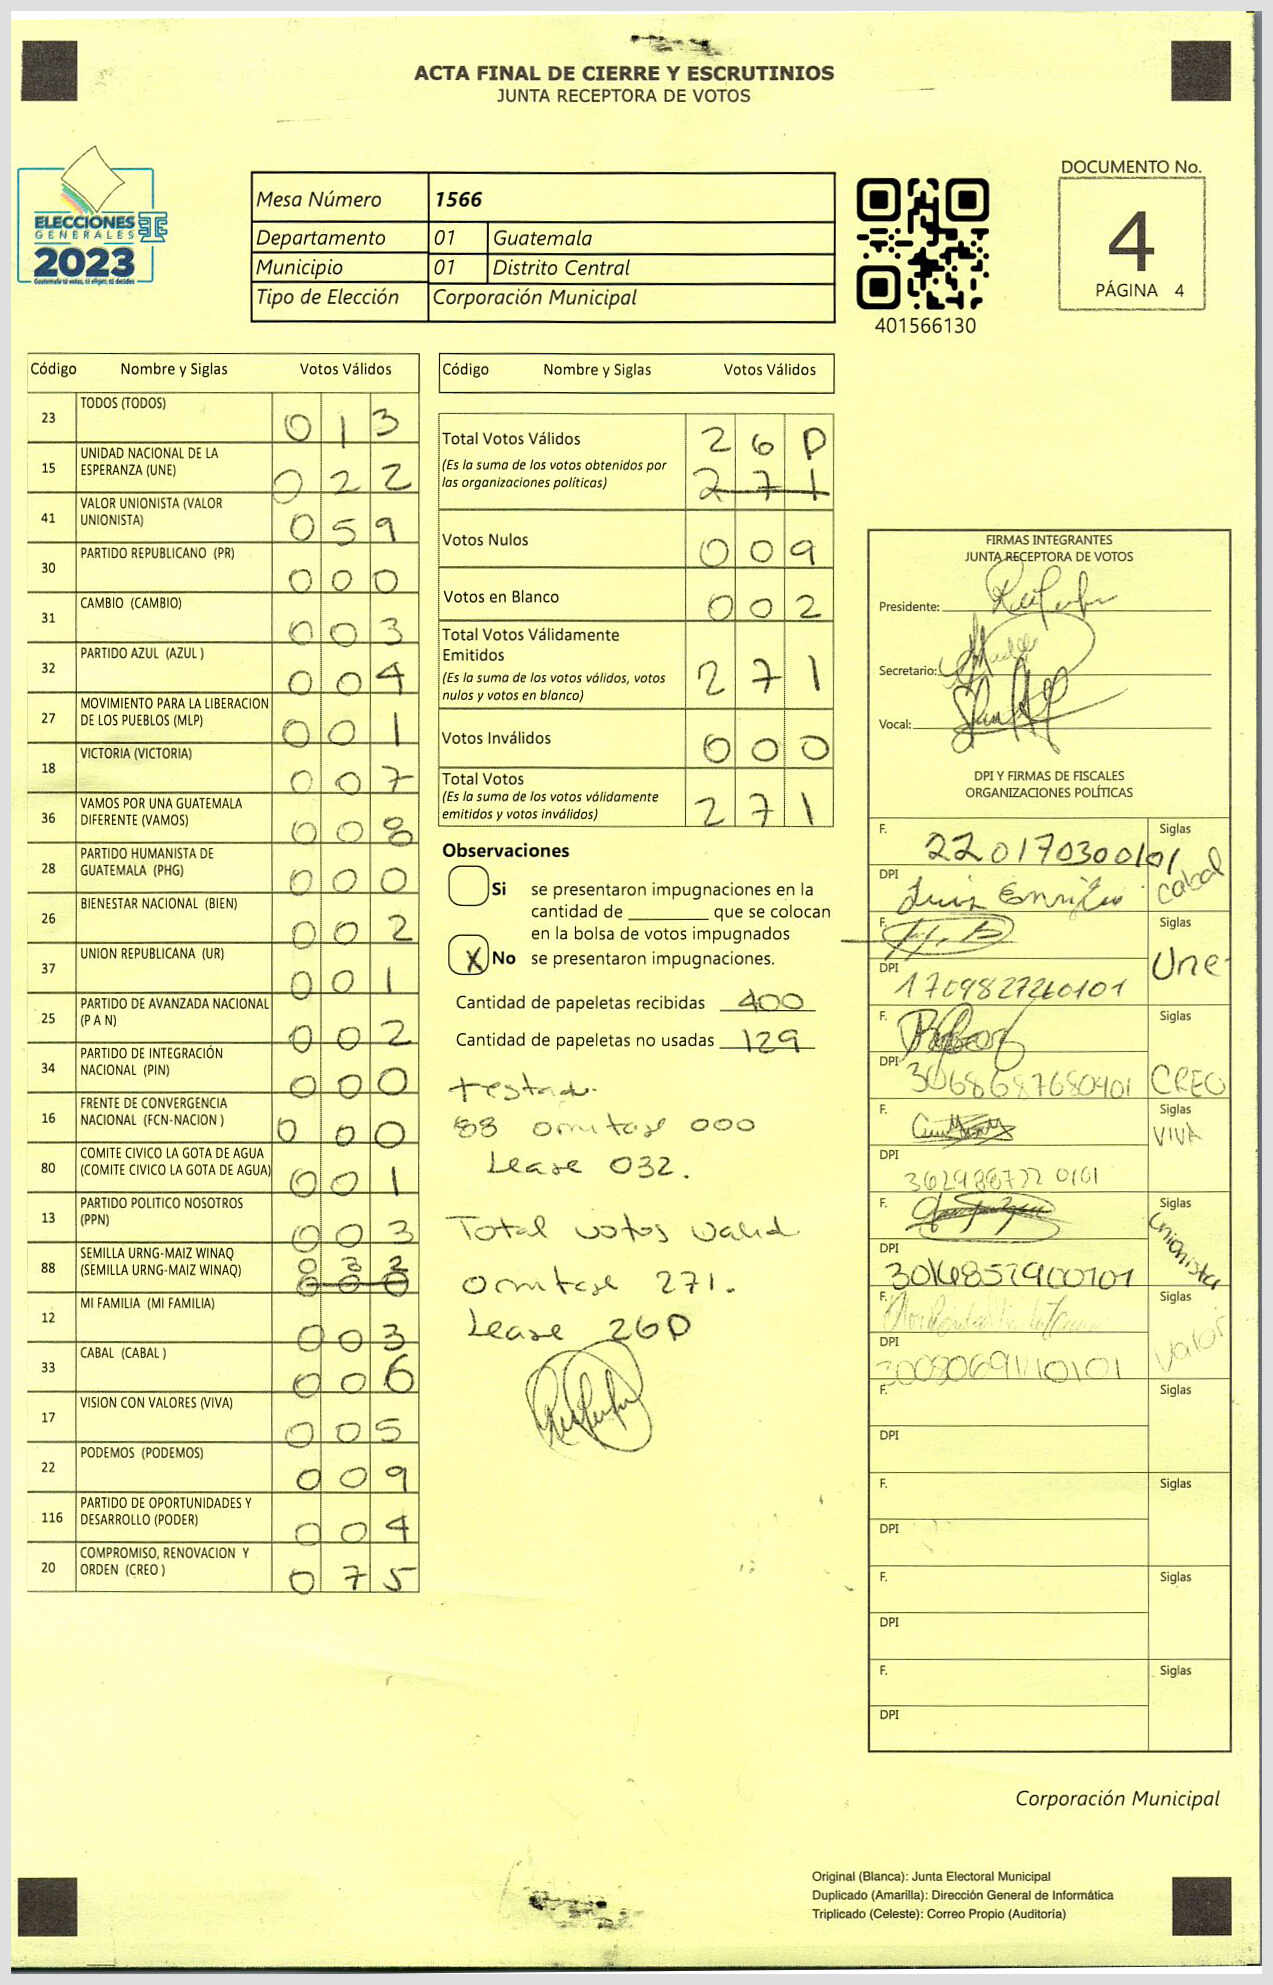 ACTA FINAL DE CIERRE Y ESCRUTINIOS
JUNTA RECEPTORA DE VOTOS
ELECCIONES
GENERALES
2023
Mesa Número 1566
Departamento 01 Guatemala
Municipio 01 Distrito Central
Tipo de Elección Corporación Municipal
401566130
DOCUMENTO No.
4
PÁGINA 4
Código Nombre y Siglas Votos Válidos
23 TODOS (TODOS) 013
15 UNIDAD NACIONAL DE LA ESPERANZA (UNE) 022
41 VALOR UNIONISTA (VALOR UNIONISTA) 059
30 PARTIDO REPUBLICANO (PR) 000
31 CAMBIO (CAMBIO) 003
32 PARTIDO AZUL (AZUL ) 004
27 MOVIMIENTO PARA LA LIBERACION DE LOS PUEBLOS (MLP) 001
18 VICTORIA (VICTORIA) 007
36 VAMOS POR UNA GUATEMALA DIFERENTE (VAMOS) 008
28 PARTIDO HUMANISTA DE GUATEMALA (PHG) 000
26 BIENESTAR NACIONAL (BIEN) 002
37 UNION REPUBLICANA (UR) 001
25 PARTIDO DE AVANZADA NACIONAL (P A N) 002
34 PARTIDO DE INTEGRACIÓN NACIONAL (PIN) 000
16 FRENTE DE CONVERGENCIA NACIONAL (FCN-NACION ) 000
80 COMITE CIVICO LA GOTA DE AGUA (COMITE CIVICO LA GOTA DE AGUA) 001
13 PARTIDO POLITICO NOSOTROS (PPN) 003
88 SEMILLA URNG-MAIZ WINAQ (SEMILLA URNG-MAIZ WINAQ) 032 000
12 MI FAMILIA (MI FAMILIA) 003
33 CABAL (CABAL ) 006
17 VISION CON VALORES (VIVA) 005
22 PODEMOS (PODEMOS) 009
116 PARTIDO DE OPORTUNIDADES Y DESARROLLO (PODER) 004
20 COMPROMISO, RENOVACION Y ORDEN (CREO ) 075
Código Nombre y Siglas Votos Válidos
Total Votos Válidos 260
(Es la suma de los votos obtenidos por
las organizaciones políticas) 271
Votos Nulos 009
Votos en Blanco 002
Total Votos Válidamente
Emitidos
(Es la suma de los votos válidos, votos
nulos y votos en blanco) 271
Votos Inválidos 000
Total Votos
(Es la suma de los votos válidamente
emitidos y votos inválidos) 271
Observaciones
Si se presentaron impugnaciones en la
cantidad de ________ que se colocan
en la bolsa de votos impugnados
X No se presentaron impugnaciones.
Cantidad de papeletas recibidas 400
Cantidad de papeletas no usadas 129
testado
88 omitase 000
Lease 032.
Total votos valid
omitase 271.
Lease 260
FIRMAS INTEGRANTES
JUNTA RECEPTORA DE VOTOS
Presidente:
Secretario:
Vocal:
DPI Y FIRMAS DE FISCALES
ORGANIZACIONES POLÍTICAS
F. 220170300101 Siglas
DPI Luis cabal
F. Siglas
DPI 1709827260101 Une
F. Siglas
DPI 3068687680901 CREO
F. Siglas
VIVA
DPI
F. Siglas
DPI unionista
F. Siglas
DPI Valor
F. Siglas
DPI
F. Siglas
DPI
F. Siglas
DPI
F. Siglas
DPI
Corporación Municipal
Original (Blanca): Junta Electoral Municipal
Duplicado (Amarilla): Dirección General de Informática
Triplicado (Celeste): Correo Propio (Auditoría)